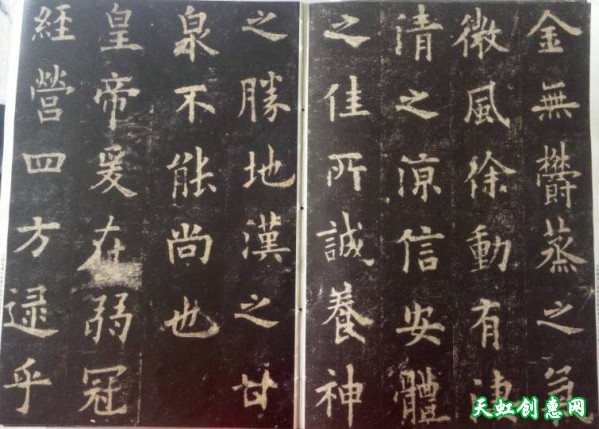 金無鬱蒸之氣
微風徐動有淒
清之涼信安體
之佳所誠養神
之勝地漢之甘
泉不能尚也
皇帝爰在弱冠
經營四方逯乎
天虹创惠网